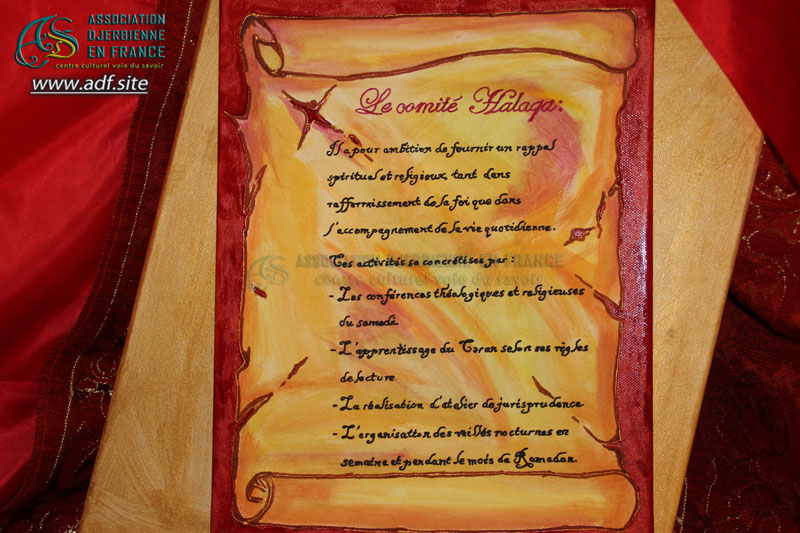 ASSOCIATION
DJERBIENNE
EN FRANCE
centre culturel voie du savoir
www.adf.site
Le comité Halaqa:
Il a pour ambition de fournir un rappel
spirituel et religieux, tant dans
raffermissement de la foi que dans
l'accompagnement de la vie quotidienne.
Ces activités se concrétises par :
ASSOCIATION DJERBIENNE EN FRANCE
centre culturel voie du savoir
- Les conférences théologiques et religieuses
du samedi
- L'apprentissage du Coran selon ses règles
de lecture
- La réalisation d'atelier de jurisprudence
- L'organisation des veillés nocturnes en
semaine et pendant le mois de Ramadan.